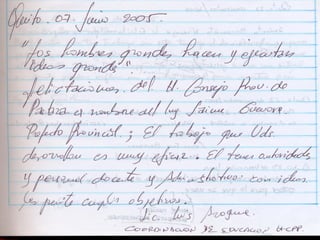 Quito. 07. Junio 2005.
"Los hombres grandes hacen y ejecutan
ideas grandes".
felicitaciones del H. Consejo Prov. de
a nombre del Ing Jaime Guevara
Prefecto Provincial; El trabajo que Uds.
desarrollan es muy eficaz. El tener autoridades
y personal docente y Administrativo con ideas
les permite cumplir objetivos.
Luis
COORDINACION DE EDUCACION HCPP